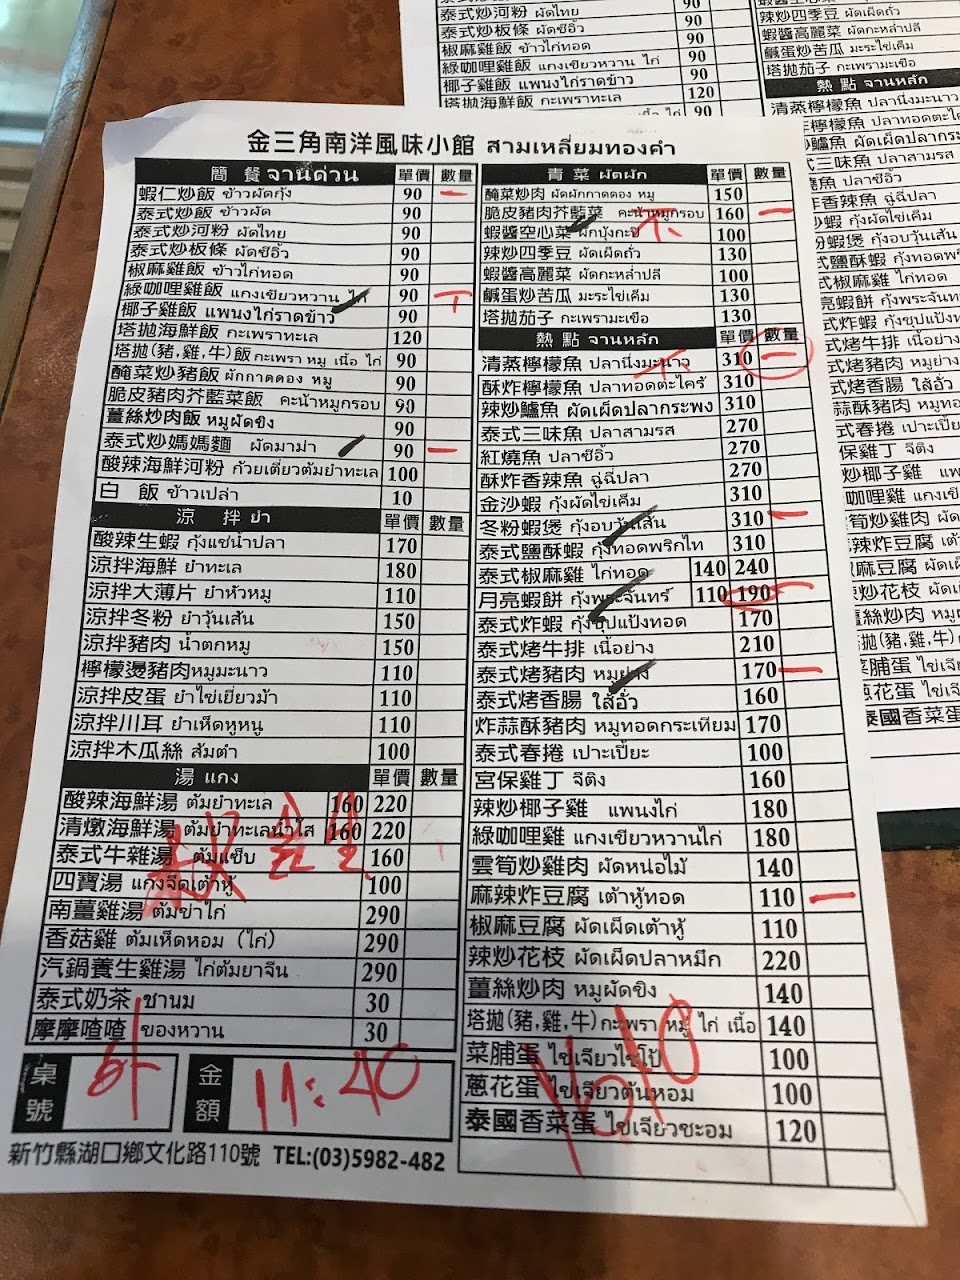 金三角南洋風味小館 สามเหลี่ยมทองคำ
簡 餐 จานด่วน 單價 數量
蝦仁炒飯 ข้าวผัดกุ้ง 90 一
泰式炒飯 ข้าวผัด 90
泰式炒河粉 ผัดไทย 90
泰式炒板條 ผัดซีอิ๊ว 90
椒麻雞飯 ข้าวไก่ทอด 90
綠咖哩雞飯 แกงเขียวหวาน ไก่ 90
椰子雞飯 แพนงไก่ราดข้าว 90
塔拋海鮮飯 กะเพราทะเล 120
塔拋(豬,雞,牛)飯 กะเพรา หมู เนื้อ ไก่ 90
醃菜炒豬飯 ผักกาดดอง หมู 90
脆皮豬肉芥藍菜飯 คะน้าหมูกรอบ 90
薑絲炒肉飯 หมูผัดขิง 90
泰式炒媽媽麵 ผัดมาม่า 90 一
酸辣海鮮河粉 ก๋วยเตี่ยวต้มยำทะเล 100
白 飯 ข้าวเปล่า 10
涼 拌 ยำ 單價 數量
酸辣生蝦 กุ้งแช่น้ำปลา 170
涼拌海鮮 ยำทะเล 180
涼拌大薄片 ยำหัวหมู 110
涼拌冬粉 ยำวุ้นเส้น 150
涼拌豬肉 น้ำตกหมู 150
檸檬燙豬肉 หมูมะนาว 110
涼拌皮蛋 ยำไข่เยี่ยวม้า 110
涼拌川耳 ยำเห็ดหูหนู 110
涼拌木瓜絲 ส้มตำ 100
湯 แกง 單價 數量
酸辣海鮮湯 ต้มยำทะเล 160 220
清燉海鮮湯 ต้มยำทะเลน้ำใส 160 220
泰式牛雜湯 ต้มแซ็บ 160
四寶湯 แกงจืดเต้าหู้ 100
南薑雞湯 ต้มข่าไก่ 290
香菇雞 ต้มเห็ดหอม (ไก่) 290
汽鍋養生雞湯 ไก่ต้มยาจีน 290
泰式奶茶 ชานม 30
摩摩喳喳 ของหวาน 30
桌號
金額 11:40
新竹縣湖口鄉文化路110號 TEL:(03)5982-482
青 菜 ผัดผัก 單價 數量
醃菜炒肉 ผัดผักกาดดอง หมู 150
脆皮豬肉芥藍菜 คะน้าหมูกรอบ 160 一
蝦醬空心菜 ผักบุ้งกะปิ 100
辣炒四季豆 ผัดเผ็ดถั่ว 130
蝦醬高麗菜 ผัดกะหล่ำปลี 100
鹹蛋炒苦瓜 มะระไข่เค็ม 130
塔拋茄子 กะเพรามะเขือ 130
熱 點 จานหลัก 單價 數量
清蒸檸檬魚 ปลานึ่งมะนาว 310 一
酥炸檸檬魚 ปลาทอดตะไคร้ 310
辣炒鱸魚 ผัดเผ็ดปลากระพง 310
泰式三味魚 ปลาสามรส 270
紅燒魚 ปลาซีอิ้ว 270
酥炸香辣魚 ฉู่ฉี่ปลา 270
金沙蝦 กุ้งผัดไข่เค็ม 310
冬粉蝦煲 กุ้งอบวุ้นเส้น 310 一
泰式鹽酥蝦 กุ้งทอดพริกไท 310
泰式椒麻雞 ไก่ทอด 140 240
月亮蝦餅 กุ้งพระจันทร์ 110 190
泰式炸蝦 กุ้งชุปแป้งทอด 170
泰式烤牛排 เนื้อย่าง 210
泰式烤豬肉 หมูย่าง 170 一
泰式烤香腸 ใส้อั่ว 160
炸蒜酥豬肉 หมูทอดกระเทียม 170
泰式春捲 เปาะเปี๊ยะ 100
宮保雞丁 จีติง 160
辣炒椰子雞 แพนงไก่ 180
綠咖哩雞 แกงเขียวหวานไก่ 180
雲筍炒雞肉 ผัดหน่อไม้ 140
麻辣炸豆腐 เต้าหู้ทอด 110 一
椒麻豆腐 ผัดเผ็ดเต้าหู้ 110
辣炒花枝 ผัดเผ็ดปลาหมึก 220
薑絲炒肉 หมูผัดขิง 140
塔拋(豬,雞,牛) กะเพรา หมู ไก่ เนื้อ 140
菜脯蛋 ไข่เจียวไชโป้ 100
蔥花蛋 ไข่เจียวต้นหอม 100
泰國香菜蛋 ไข่เจียวชะอม 120
1510
泰式炒河粉 ผัดไทย 90
泰式炒板條 ผัดซีอิ๊ว 90
椒麻雞飯 ข้าวไก่ทอด 90
綠咖哩雞飯 แกงเขียวหวาน ไก่ 90
椰子雞飯 แพนงไก่ราดข้าว 90
塔拋海鮮飯 กะเพราทะเล 120
辣炒四季豆 ผัดเผ็ดถั่ว
蝦醬高麗菜 ผัดกะหล่ำปลี
鹹蛋炒苦瓜 มะระไข่เค็ม
塔拋茄子 กะเพรามะเขือ
熱 點 จานหลัก
清蒸檸檬魚 ปลานึ่งมะนาว